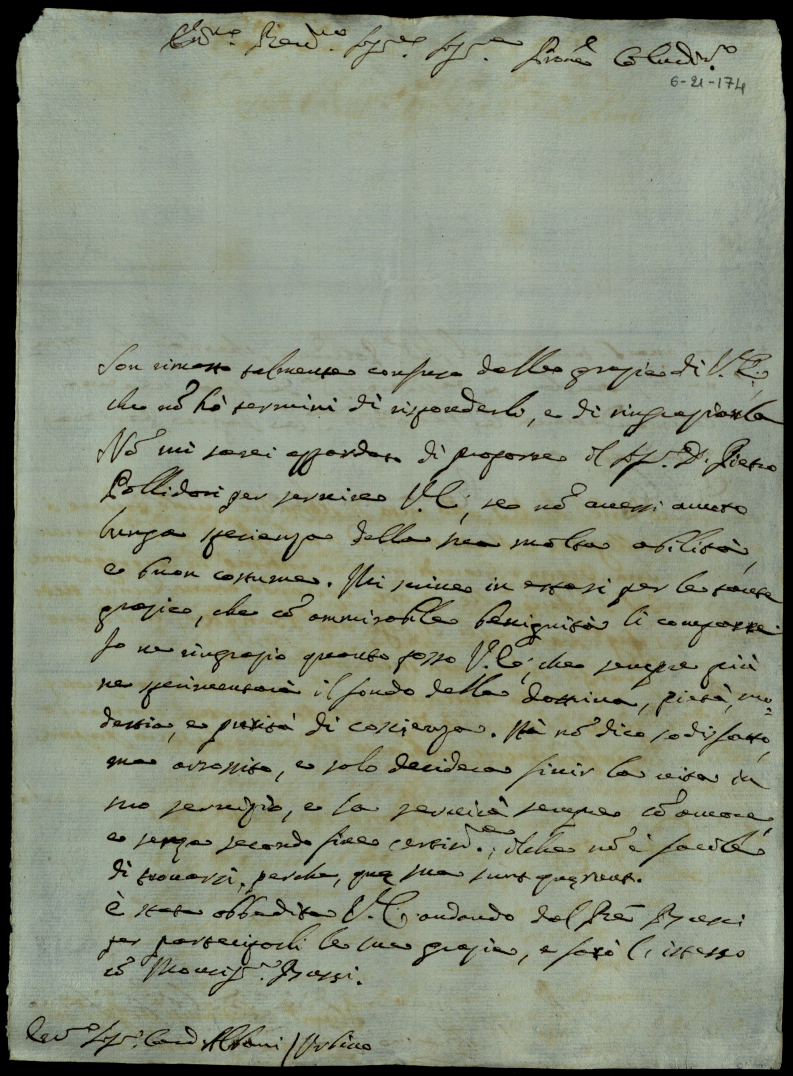 Em.mo Rev.mo Sig.re Sig.re Prone Col.mo
6-21-174
Son rimasto talmente confuso delle grazie di V. E.,
che nõ hò termini di risponderli, e di ringraziarla
Nõ mi sarei azzardato di proporre il Sig.r D. Pietro
Pollidori per servire V. E., se nõ avessi avuto
lunga sperienza della sua molta abilità,
e buon costume. Mi scrive in estasi per le tante
grazie, che cõ ammirabile benignità li comparte
Io ne ringrazio quanto posso V. E.; che sempre più
ne sperimentarà il fondo della dottrina, pietà, mo=
destia, e purità di coscienza. Stà nõ dico sodisfatto,
ma arrossito, e solo desidera finir la vita in
suo servizio, e la servirà sempre cõ amore,
e senza secondo fine certiss.e; il che nõ è facile
di trovarsi, perche, quę sua sunt quęrunt.
È stata obbedita V. E. andando dal Prẽ Bussi
per participarli le sue grazie, e farò l'istesso
cõ Monsig.r Bussi.
Sig.r Card Albani / Urbino